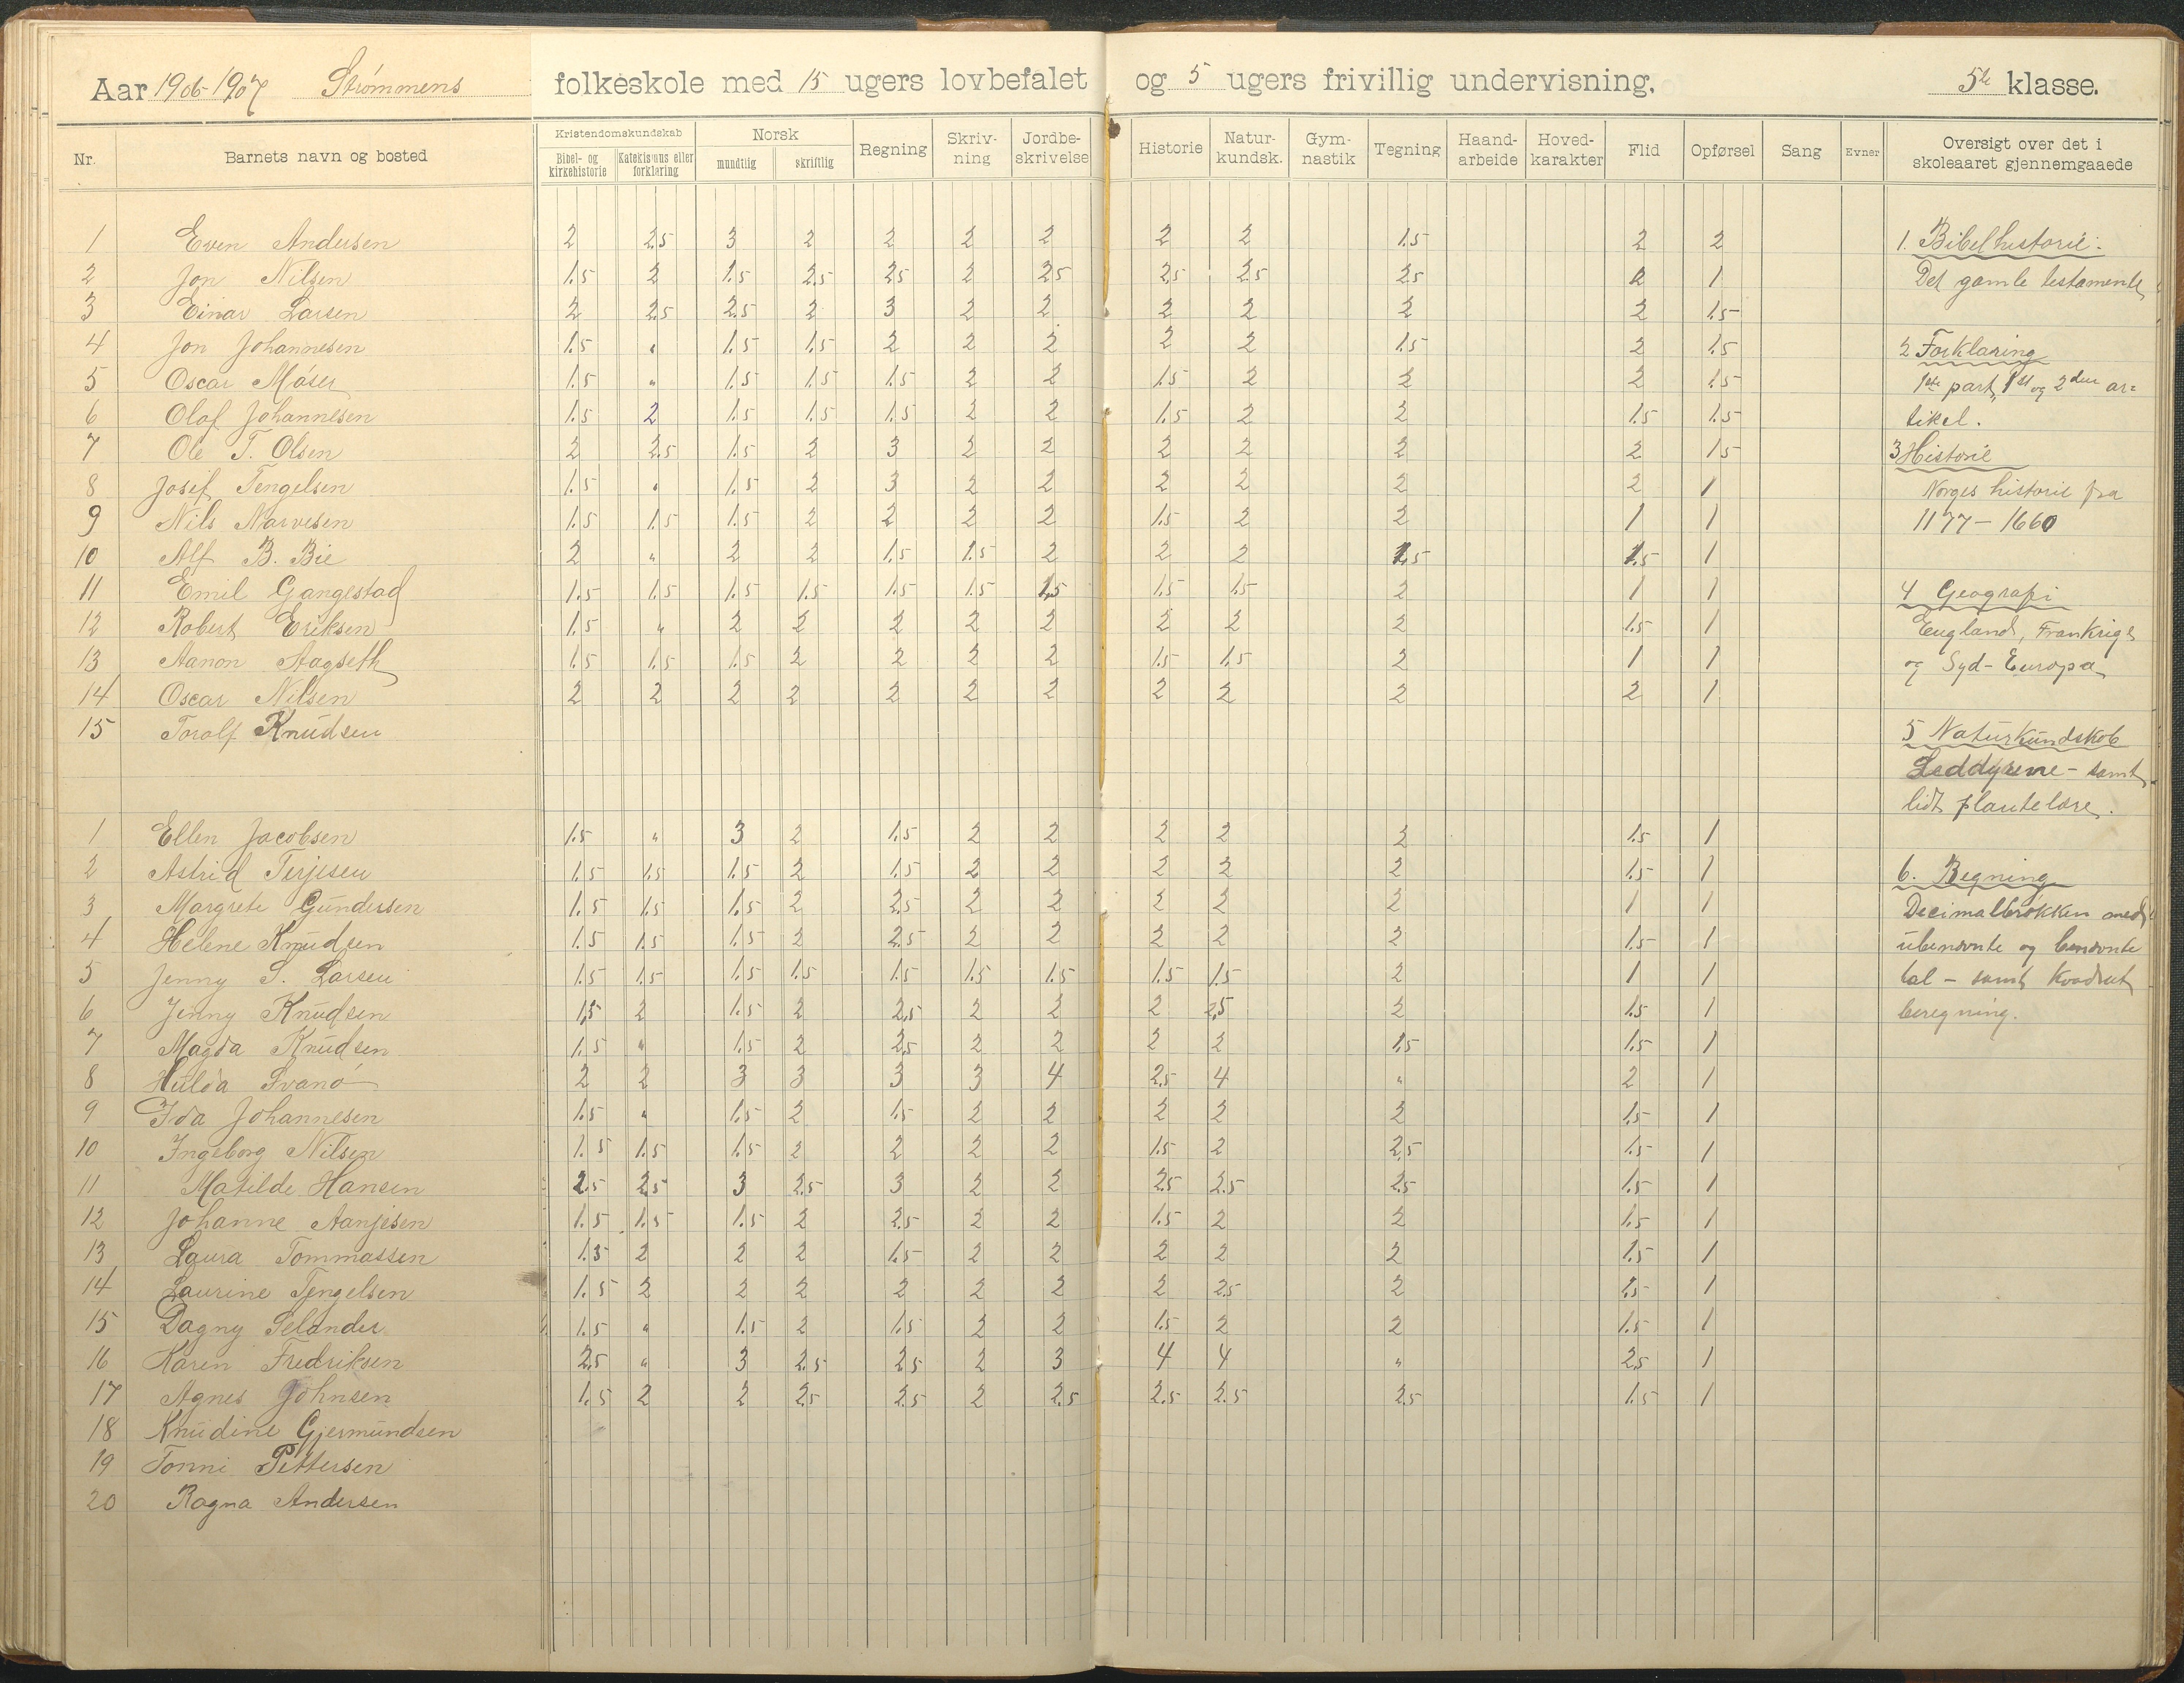 Aar 1906-1907 Strømmens folkeskole med 15 ugers lovbefalet og 5 ugers frivillig undervisning. 5te klasse.
Nr. Barnets navn og bosted Kristendomskundskab Bibel- og kirkehistorie Katekismus eller forklaring Norsk mundtlig skriftlig Regning Skriv-ning Jordbe-skrivelse Historie Natur-kundsk. Gym-nastik Tegning Haand-arbeide Hoved-karakter Flid Opførsel Sang Evner Oversigt over det i skoleaaret gjennemgaaede
1 Even Andersen 2 2.5 3 2 2 2 2 2 2 1.5 2 2 1. Bibelhistorie:
2 Jon Nilsen 1.5 2 1.5 2.5 2.5 2 2.5 2.5 2.5 2.5 2 1 Det gamle testamente
3 Einar Larsen 2 2.5 2.5 2 3 2 2 2 2 2 2 1.5
4 Jon Johannesen 1.5 " 1.5 1.5 2 2 2 2 2 1.5 2 1.5 2 Forklaring
5 Oscar Møser 1.5 " 1.5 1.5 1.5 2 2 1.5 2 2 2 1.5 1ste part, 1st og 2den ar=
6 Olaf Johannesen 1.5 2 1.5 1.5 1.5 2 2 1.5 2 2 1.5 1.5 tikel.
7 Ole T. Olsen 2 2.5 1.5 2 3 2 2 2 2 2 2 1.5 3 Historie
8 Josef Tengelsen 1.5 " 1.5 2 3 2 2 2 2 2 2 1 Norges historie fra
9 Nils Narvesen 1.5 1.5 1.5 2 2 2 2 1.5 2 2 1 1 1177-1660
10 Alf B. Bie 2 " 2 2 1.5 1.5 2 2 2 1.5 1.5 1
11 Emil Gangestad 1.5 1.5 1.5 1.5 1.5 1.5 1.5 1.5 1.5 2 1 1 4 Geografi
12 Robert Eriksen 1.5 " 2 2 2 2 2 2 2 2 1.5 1 England, Frankrige
13 Aanon Aagseth 1.5 1.5 1.5 2 2 2 2 1.5 1.5 2 1 1 og Syd-Europa
14 Oscar Nilsen 2 2 2 2 2 2 2 2 2 2 2 1
15 Torolf Knudsen 5 Naturkundskab
Leddyrene - samt
lidt plantelære.
1 Ellen Jacobsen 1.5 " 3 2 1.5 2 2 2 2 2 1.5 1
2 Astrid Terjesen 1.5 1.5 1.5 2 1.5 2 2 2 2 2 1.5 1 6. Regning
3 Margrete Gundersen 1.5 1.5 1.5 2 2.5 2 2 2 2 2 1 1 Decimalbrøkken med
4 Helene Knudsen 1.5 1.5 1.5 2 2.5 2 2 2 2 2 1.5 1 ubenævnte og benævnte
5 Jenny S. Larsen 1.5 1.5 1.5 1.5 1.5 1.5 1.5 1.5 1.5 2 1 1 tal - samt kvadrat
6 Jenny Knudsen 1.5 2 1.5 2 2.5 2 2 2 2.5 2 1.5 1 beregning.
7 Magda Knudsen 1.5 " 1.5 2 2.5 2 2 2 2 1.5 1.5 1
8 Hulda Svanø 2 2 3 3 3 3 4 2.5 4 " 2 1
9 Ida Johannesen 1.5 " 1.5 2 1.5 2 2 2 2 2 1.5 1
10 Ingeborg Nilsen 1.5 1.5 1.5 2 2 2 2 1.5 2 2.5 1.5 1
11 Matilde Hansen 2.5 2.5 3 2.5 3 2 2 2.5 2.5 2.5 1.5 1
12 Johanne Aanjesen 1.5 1.5 1.5 2 2.5 2 2 1.5 2 2 1.5 1
13 Laura Tommassen 1.5 2 2 2 1.5 2 2 2 2 2 1.5 1
14 Laurine Tengelsen 1.5 2 2 2 2 2 2 2 2.5 2 1.5 1
15 Dagny Selander 1.5 " 1.5 2 1.5 2 2 1.5 2 2 1.5 1
16 Karen Fredriksen 2.5 " 3 2.5 2.5 2 3 4 4 " 2.5 1
17 Agnes Johnsen 1.5 2 2 2.5 2.5 2 2.5 2.5 2.5 2.5 1.5 1
18 Knudine Gjermundsen
19 Tonni Pettersen
20 Ragna Andersen